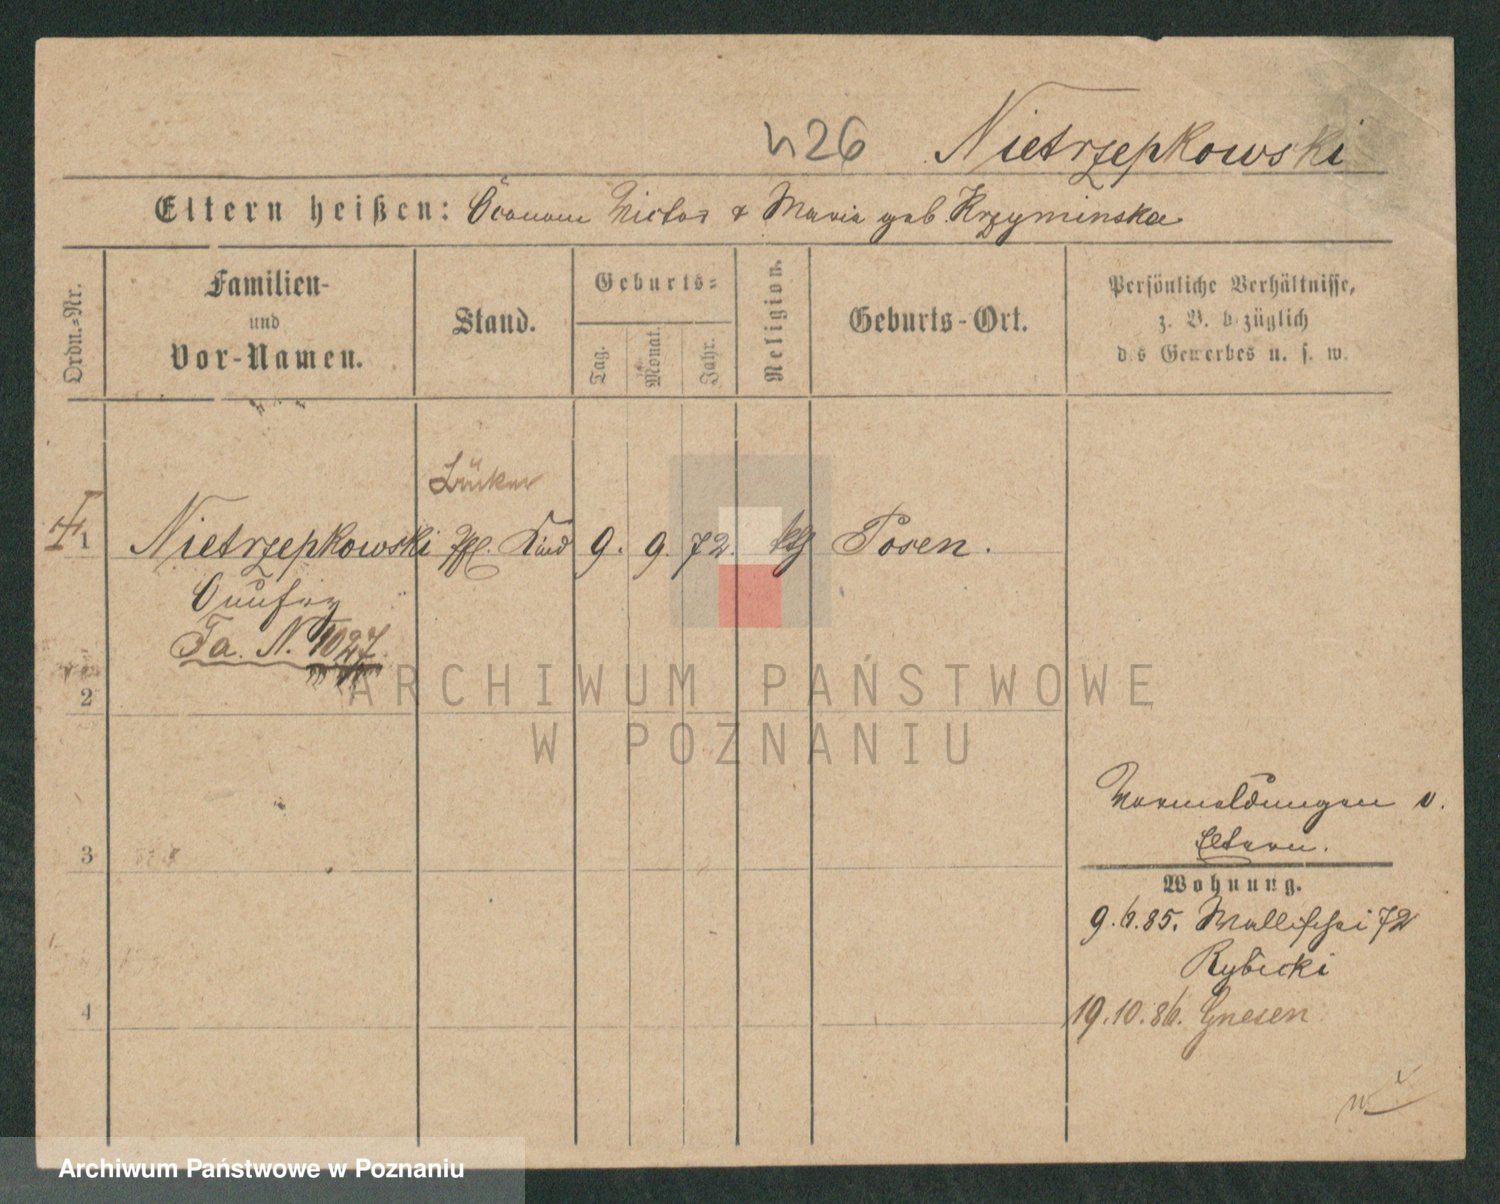 426 Nietrzepkowski
Eltern heißen: Öconom Victor & Maria geb. Krzyminska
Ordn.-Nr.
Familien-
und
Vor-Namen.
Stand.
Geburts-
Tag.
Monat.
Jahr.
Religion.
Geburts-Ort.
Persönliche Verhältnisse,
z. B. bezüglich
des Gewerbes u. s. w.
1 Nietrzepkowski Pfl. Kind 9. 9. 72. ktg Posen.
Onufry
Fa. N. 1027.
2
ARCHIWUM PAŃSTWOWE
W POZNANIU
Vormeldungen v.
Eltern.
3
Wohnung.
9.6.85. Wallischei 72
Rybicki
4
19.10.86. Gnesen
Archiwum Państwowe w Poznaniu